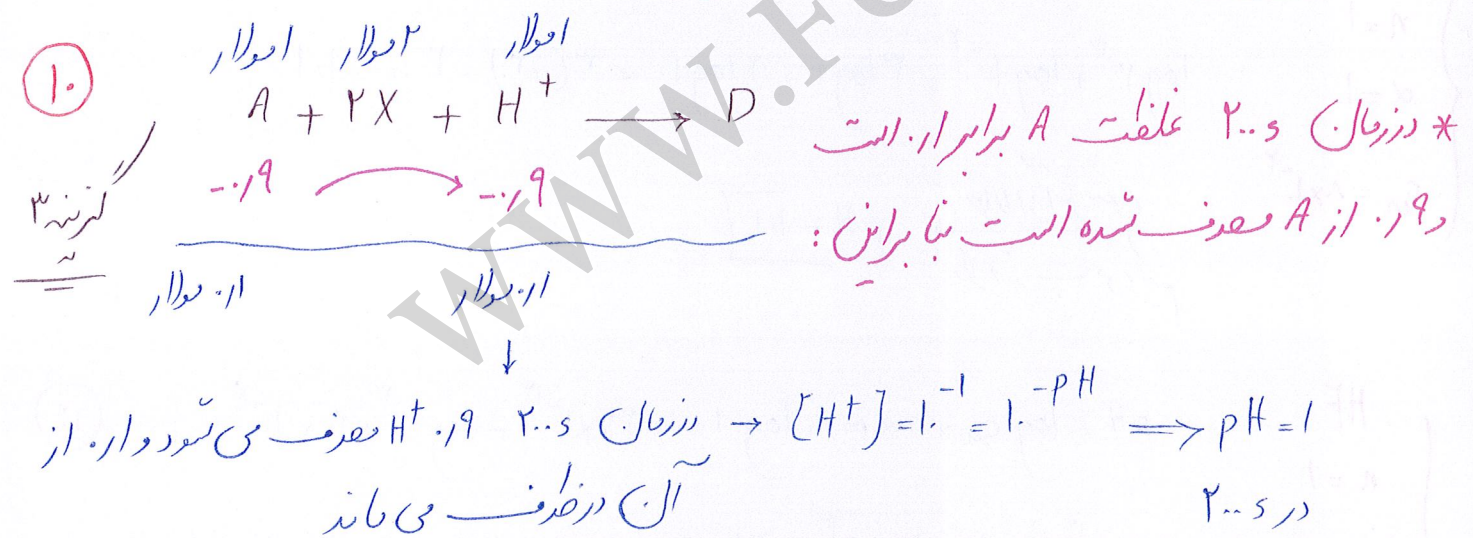 ۱۰
۱مولار ۲مولار ۱مولار
A + ۲X + H⁺ → D
-۰/۹ → -۰/۹
گزینه ۳
۰/۱ مولار ۰/۱ مولار
* در زمان ۲۰۰s غلظت A برابر ۰/۱ است
و ۰/۹ از A مصرف شده است بنابراین:
در زمان ۲۰۰s ۰/۹ H⁺ مصرف می شود و ۰/۱ از
آن در ظرف می ماند
→ [H⁺] = ۱۰⁻¹ = ۱۰⁻ᵖᴴ ⟹ pH = ۱
در ۲۰۰s
WWW.F